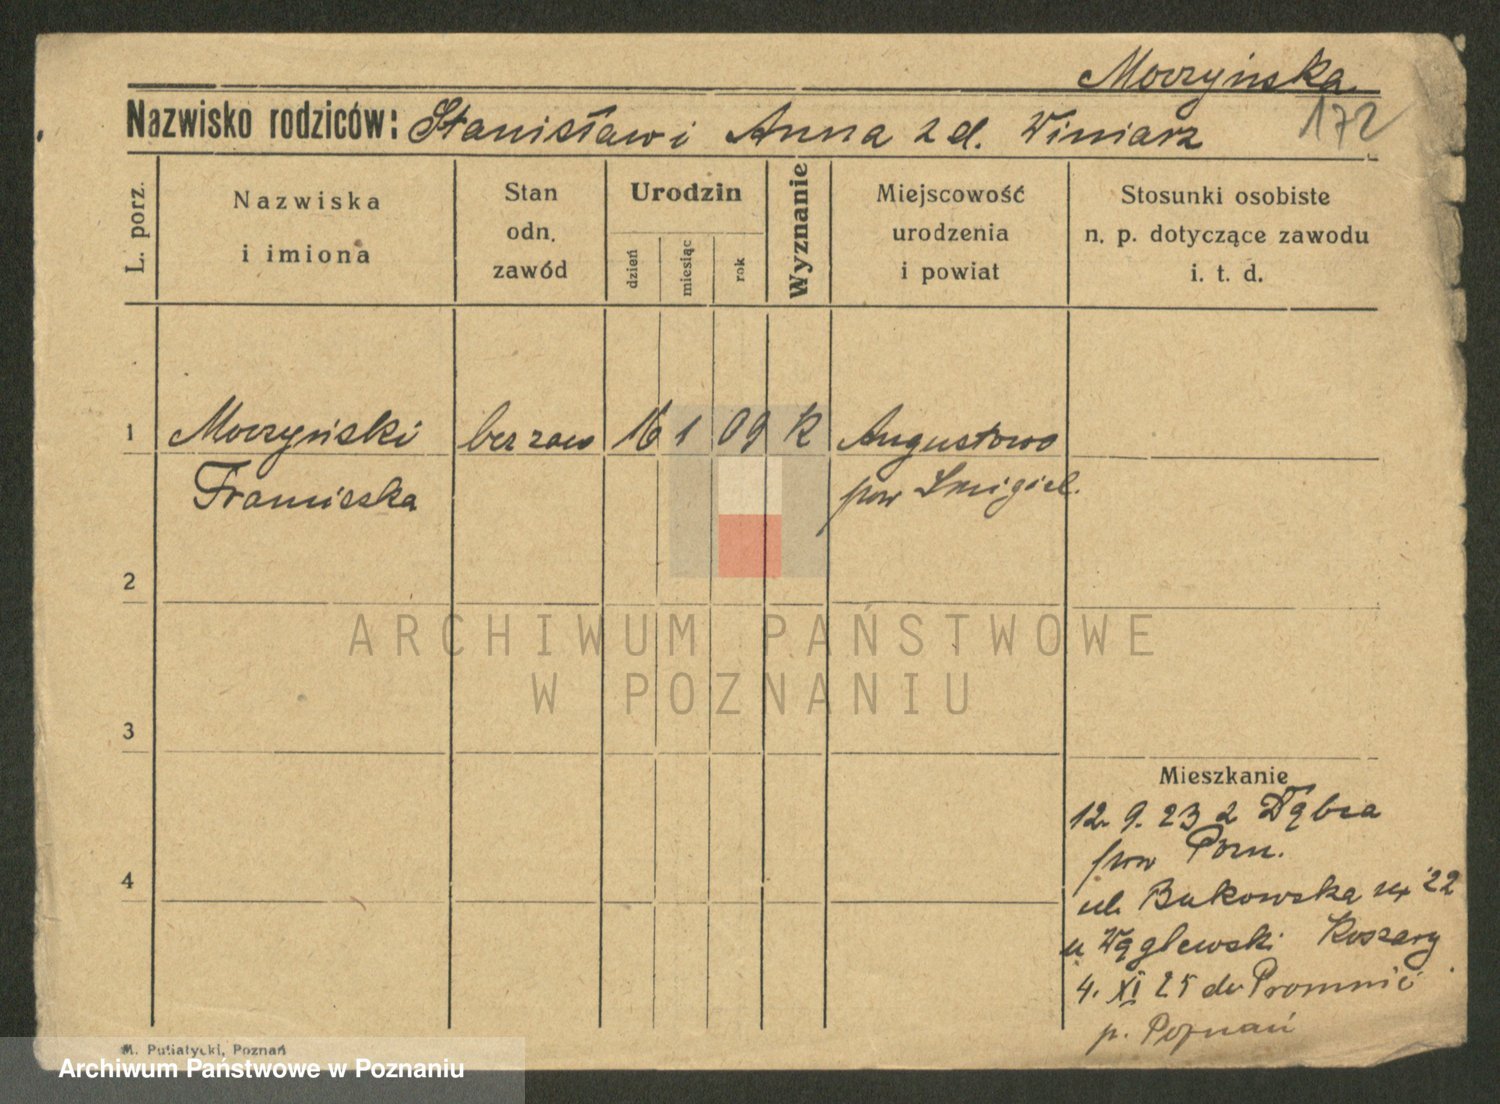 Moczyńska
172
Nazwisko rodziców: Stanisław i Anna z d. Winiarz
L. porz.
Nazwiska
i imiona
Stan
odn.
zawód
Urodzin
dzień
miesiąc
rok
Wyznanie
Miejscowość
urodzenia
i powiat
Stosunki osobiste
n. p. dotyczące zawodu
i. t. d.
1 Moczyński bez zaw 16 1 09 K Augustowo
Franciszka pow Śmigiel.
2
3
4
Mieszkanie
12. 9. 23 z Dębca
pow Pozn.
ul. Bukowska 22
u Węglewski Koszary
4. XI 25 do Promnic
p. Poznań
M. Putiatycki, Poznań
ARCHIWUM PAŃSTWOWE
W POZNANIU
Archiwum Państwowe w Poznaniu